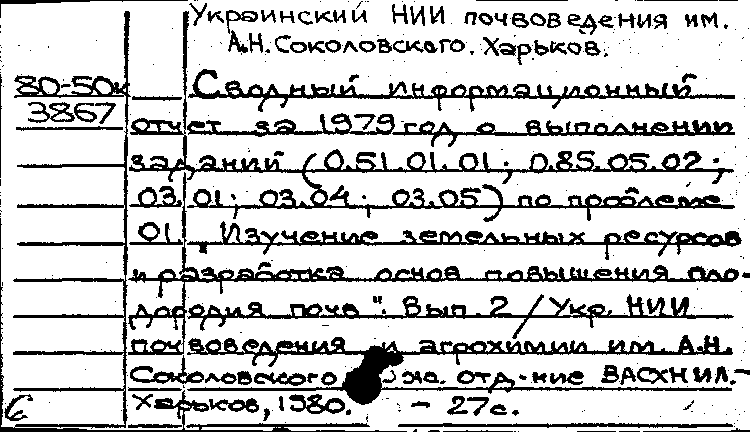 Украинский НИИ почвоведения им.
А.Н. Соколовского. Харьков.
80-50к
3867
Сводный информационный
отчет за 1979 год о выполнении
заданий (0.51.01.01; 0.85.05.02;
03.01; 03.04; 03.05) по проблеме
01. „Изучение земельных ресурсов
и разработка основ повышения пло-
дородия почв". Вып. 2 / Укр. НИИ
почвоведения и агрохимии им. А.Н.
Соколовского отд-ние ВАСХНИЛ.-
Харьков, 1980. - 27с.